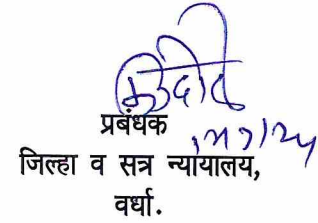 प्रबंधक
जिल्हा व सत्र न्यायालय,
वर्धा.